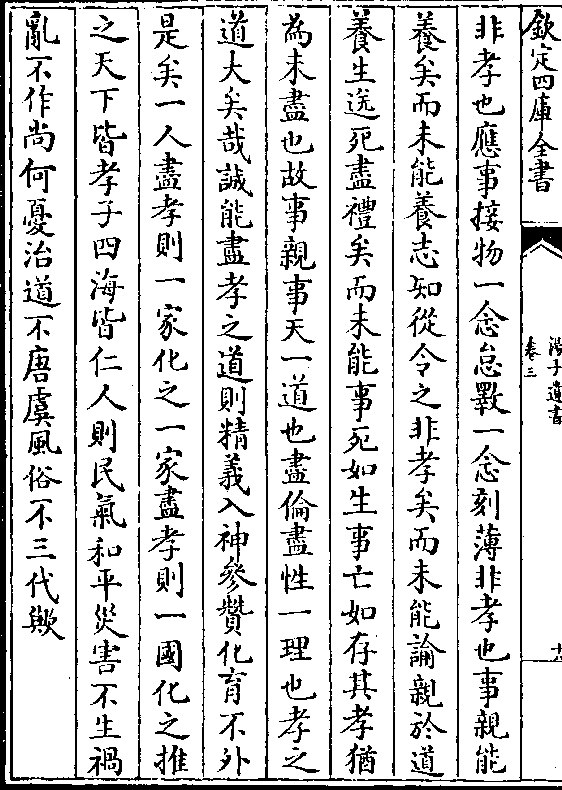 欽定四庫全書
湯子遺書
卷三
非孝也應事接物一念怠斁一念刻薄非孝也事親能
養矣而未能養志知從令之非孝矣而未能論親於道
養生送死盡禮矣而未能事死如生事亡如存其孝猶
為未盡也故事親事天一道也盡倫盡性一理也孝之
道大矣哉誠能盡孝之道則精義入神參贊化育不外
是矣一人盡孝則一家化之一家盡孝則一國化之推
之天下皆孝子四海皆仁人則民氣和平災害不生禍
亂不作尚何憂治道不唐虞風俗不三代歟